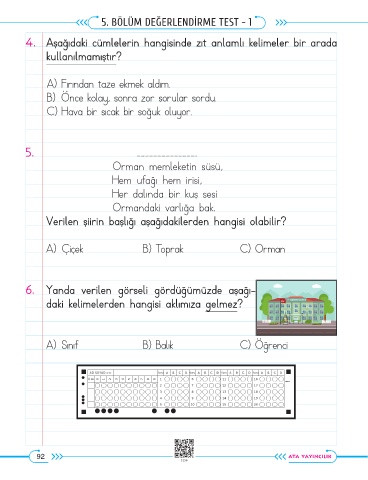 5. BÖLÜM DEĞERLENDİRME TEST - 1
4. Aşağıdaki cümlelerin hangisinde zıt anlamlı kelimeler bir arada
kullanılmamıştır?
A) Fırından taze ekmek aldım.
B) Önce kolay, sonra zor sorular sordu.
C) Hava bir sıcak bir soğuk oluyor.
5. _______________
Orman memleketin süsü,
Hem ufağı hem irisi,
Her dalında bir kuş sesi
Ormandaki varlığa bak.
Verilen şiirin başlığı aşağıdakilerden hangisi olabilir?
A) Çiçek B) Toprak C) Orman
6. Yanda verilen görseli gördüğümüzde aşağı-
daki kelimelerden hangisi aklımıza gelmez?
A) Sınıf B) Balık C) Öğrenci
92
ATA YAYINCILIK